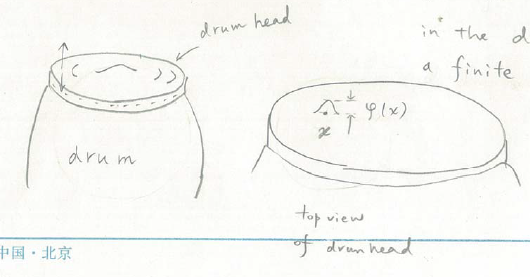 drum head
in the d
a finite
φ(x)
x
drum
top view
of drumhead
中国·北京